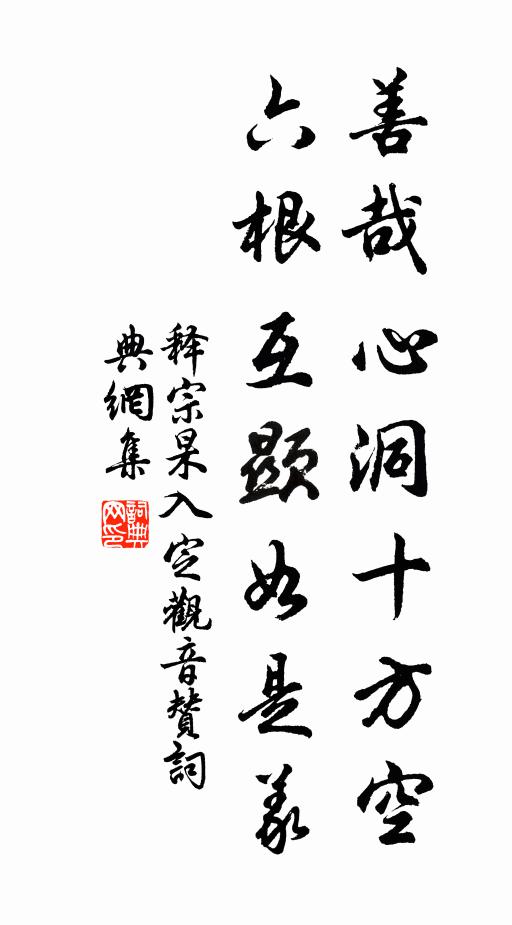 善哉心洞十方空
六根互顯如是義
释宗杲入定觀音贊詞
典網集
詞典
网印